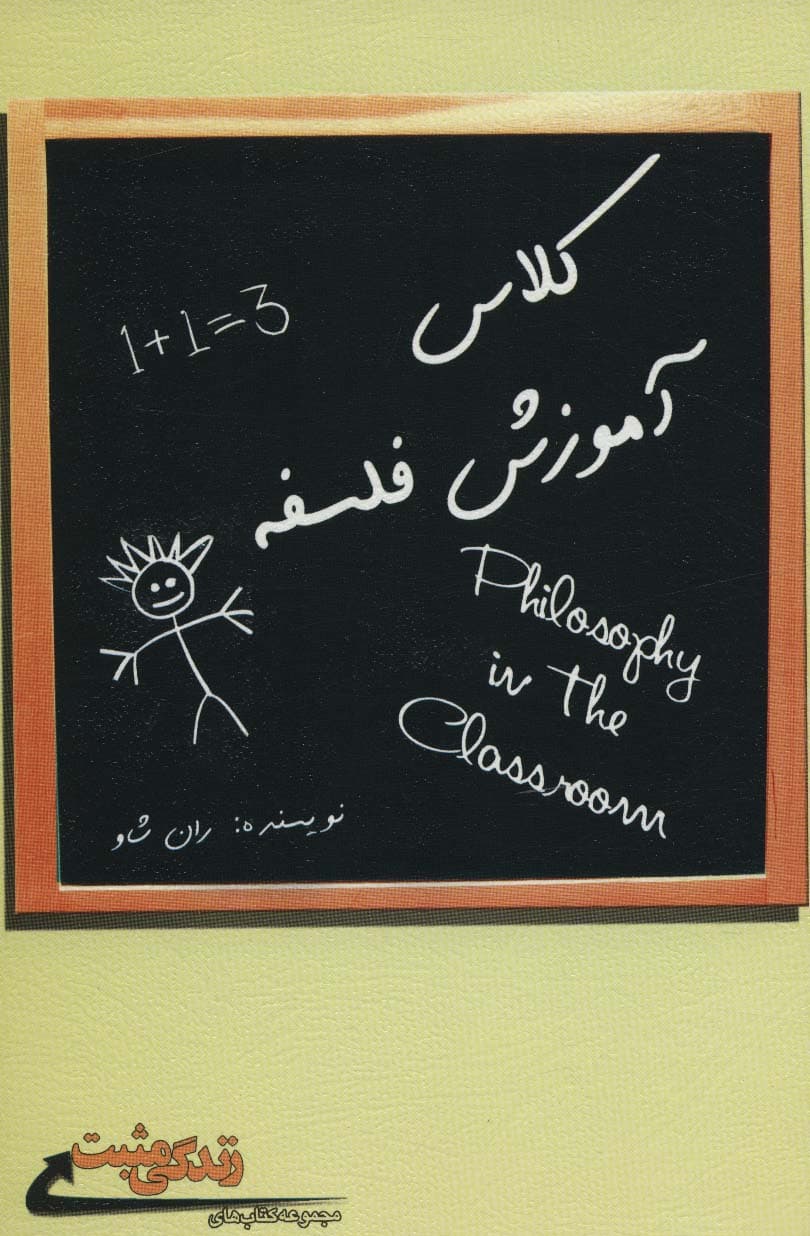 کلاس
1+1=3
آموزش فلسفه
Philosophy
in The
Classroom
نویسنده: ران شاو
زندگی مثبت
مجموعه کتاب‌های